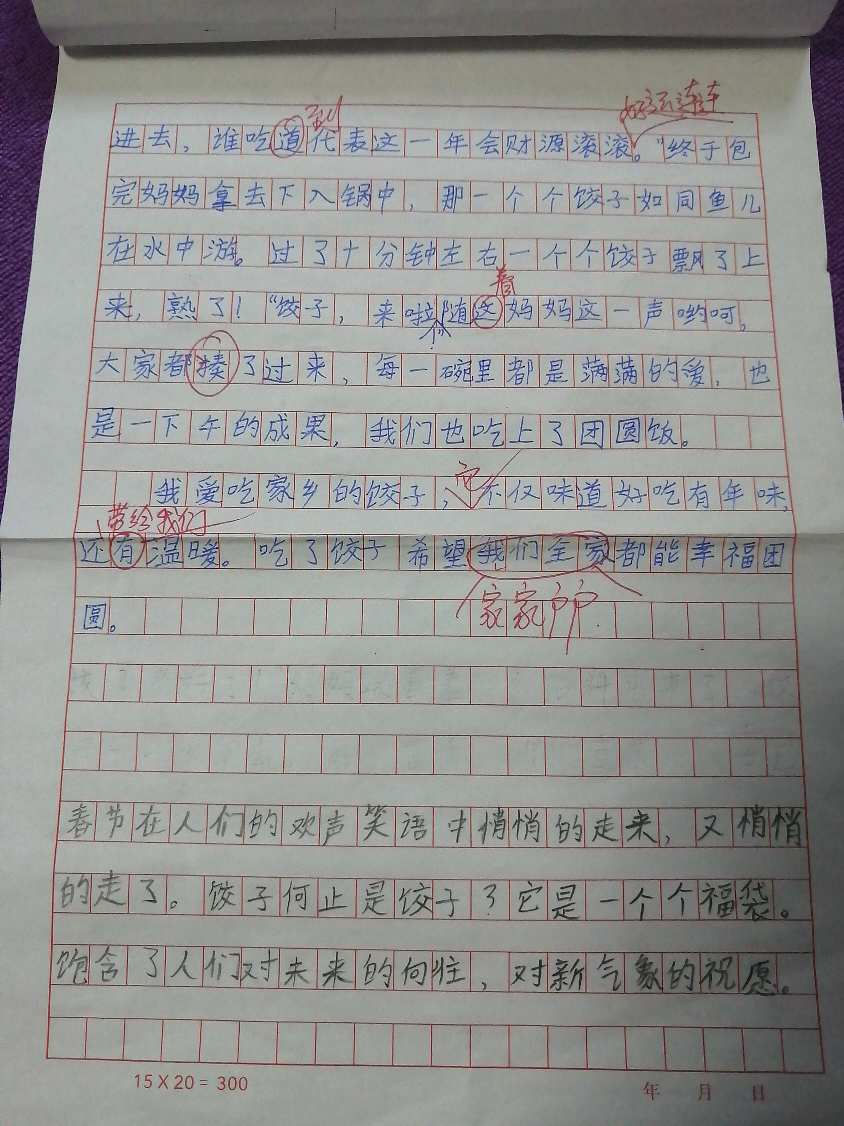 好运连连
到
进去，谁吃道代表这一年会财源滚滚。"终于包
完妈妈拿去下入锅中，那一个个饺子如同鱼儿
在水中游。过了十分钟左右一个个饺子飘了上
着
来，熟了！"饺子，来啦"随这妈妈这一声哟呵，
大家都揍了过来，每一碗里都是满满的爱，也
是一下午的成果，我们也吃上了团圆饭。
它
我爱吃家乡的饺子，不仅味道好吃有年味，
带给我们
还有温暖。吃了饺子 希望我们全家都能幸福团
家家户户
圆。
春节在人们的欢声笑语中悄悄的走来，又悄悄
的走了。饺子何止是饺子？它是一个个福袋。
饱含了人们对未来的向往，对新气象的祝愿。
15×20=300
年 月 日